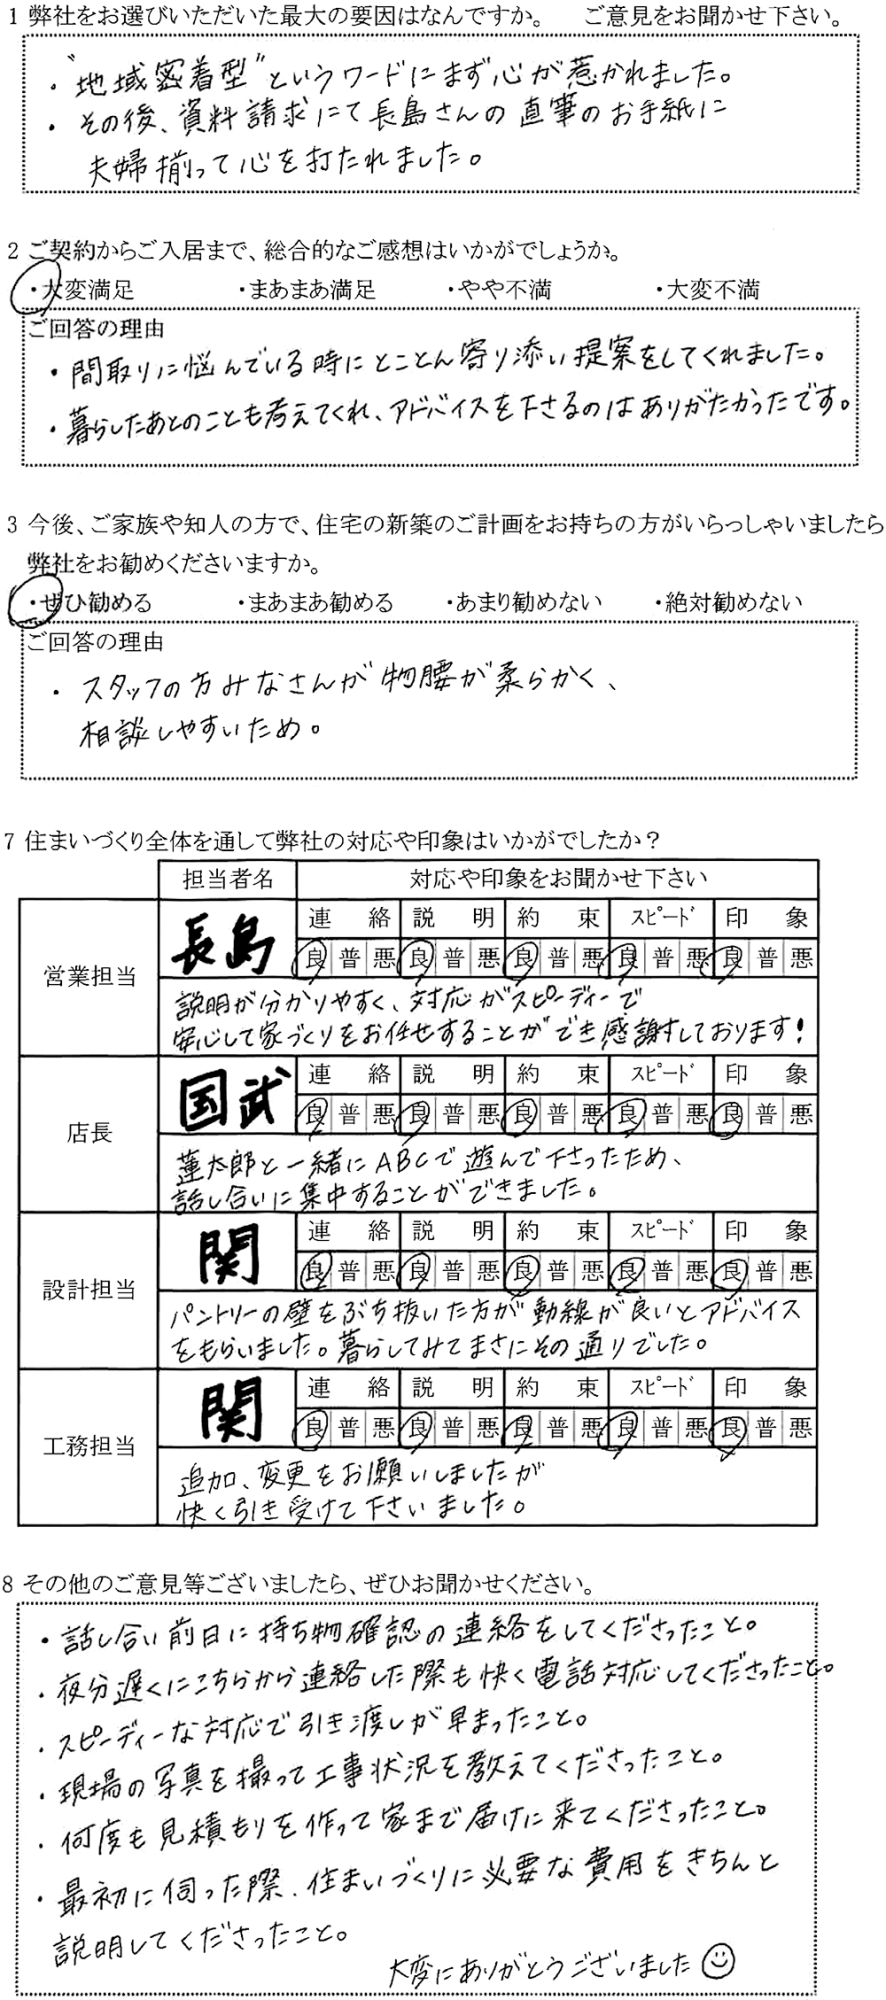 1 弊社をお選びいただいた最大の要因はなんですか。　ご意見をお聞かせ下さい。
・"地域密着型"というワードにまず心が惹かれました。
・その後、資料請求にて長島さんの直筆のお手紙に
夫婦揃って心を打たれました。
2 ご契約からご入居まで、総合的なご感想はいかがでしょうか。
・大変満足　・まあまあ満足　・やや不満　・大変不満
ご回答の理由
・間取りに悩んでいる時にとことん寄り添い提案をしてくれました。
・暮らしたあとのことも考えてくれ、アドバイスを下さるのはありがたかったです。
3 今後、ご家族や知人の方で、住宅の新築のご計画をお持ちの方がいらっしゃいましたら
弊社をお勧めくださいますか。
・ぜひ勧める　・まあまあ勧める　・あまり勧めない　・絶対勧めない
ご回答の理由
・スタッフの方みなさんが物腰が柔らかく、
相談しやすいため。
7 住まいづくり全体を通して弊社の対応や印象はいかがでしたか？
担当者名　対応や印象をお聞かせ下さい
営業担当　長島　連絡　説明　約束　スピード　印象
良 普 悪 良 普 悪 良 普 悪 良 普 悪 良 普 悪
説明が分かりやすく、対応がスピーディーで
安心して家づくりをお任せすることができ感謝しております！
店長　国武　連絡　説明　約束　スピード　印象
良 普 悪 良 普 悪 良 普 悪 良 普 悪 良 普 悪
蓮太郎と一緒にABCで遊んで下さったため、
話し合いに集中することができました。
設計担当　関　連絡　説明　約束　スピード　印象
良 普 悪 良 普 悪 良 普 悪 良 普 悪 良 普 悪
パントリーの壁をぶち抜いた方が動線が良いとアドバイス
をもらいました。暮らしてみてまさにその通りでした。
工務担当　関　連絡　説明　約束　スピード　印象
良 普 悪 良 普 悪 良 普 悪 良 普 悪 良 普 悪
追加、変更をお願いしましたが
快く引き受けて下さいました。
8 その他のご意見等ございましたら、ぜひお聞かせください。
・話し合い前日に持ち物確認の連絡をしてくださったこと。
・夜分遅くにこちらから連絡した際も快く電話対応してくださったこと。
・スピーディーな対応で引き渡しが早まったこと。
・現場の写真を撮って工事状況を教えてくださったこと。
・何度も見積もりを作って家まで届けに来てくださったこと。
・最初に伺った際、住まいづくりに必要な費用をきちんと
説明してくださったこと。
大変にありがとうございました